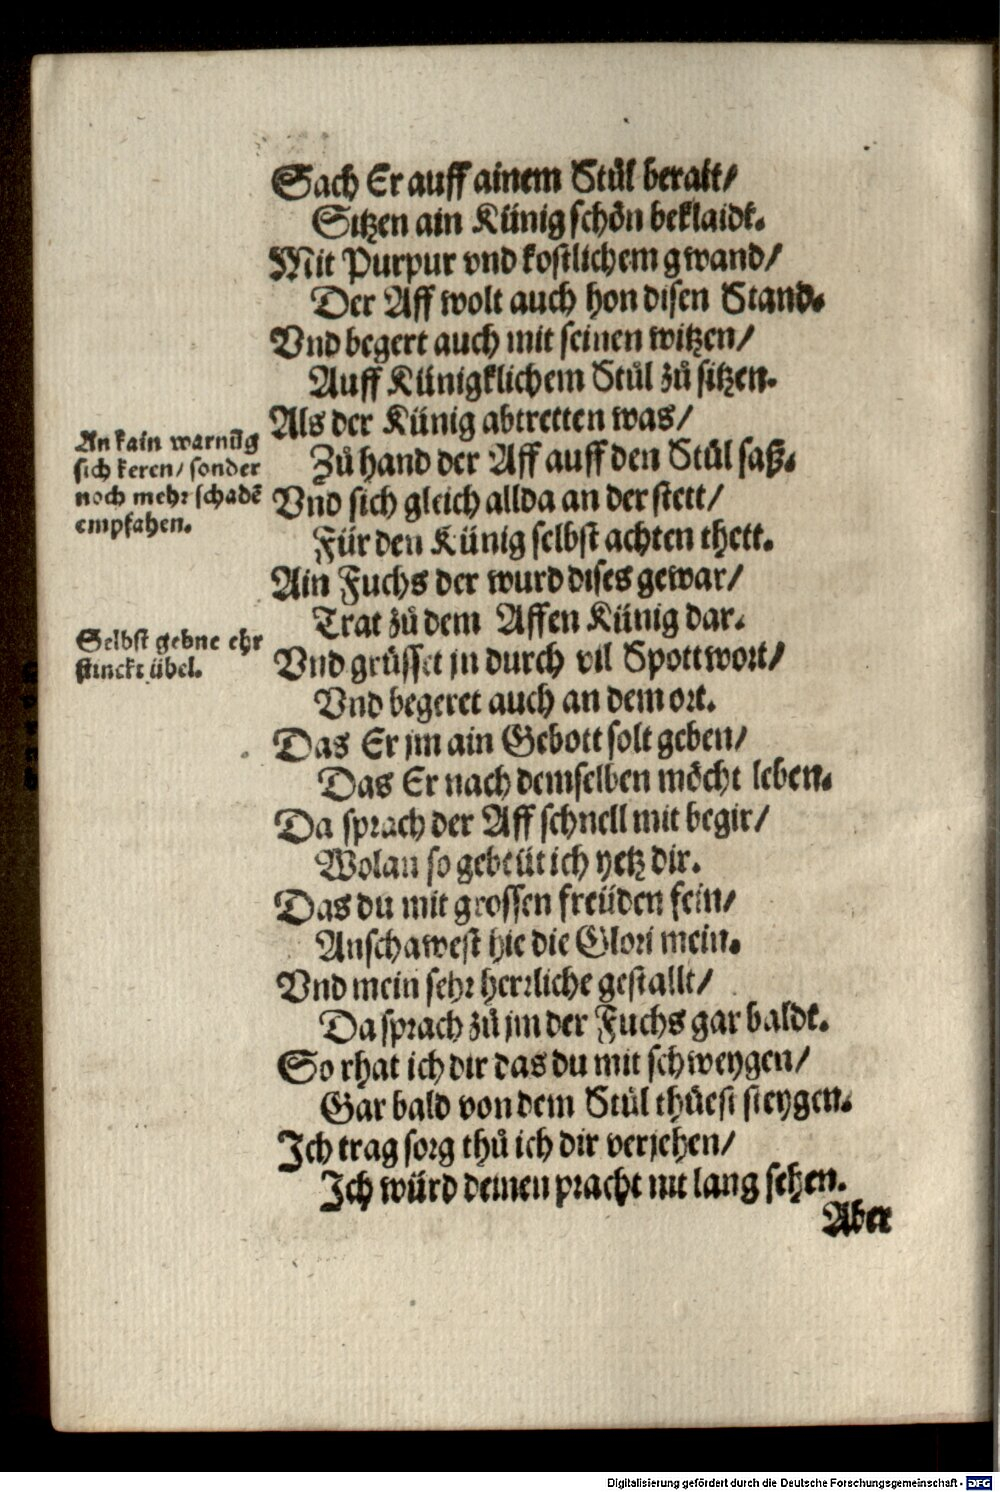 Sach Er auff ainem Stůl berait/
Sitzen ain Künig schön beklaidt.
Mit Purpur vnd kostlichem gwand/
Der Aff wolt auch hon disen Stand.
Vnd begert auch mit seinen witzen/
Auff Künigklichem Stůl zů sitzen.
Als der Künig abtretten was/
Zů hand der Aff auff den Stůl saß.
Vnd sich gleich allda an der stett/
Für den Künig selbst achten thett.
Ain Fuchs der wurd dises gewar/
Trat zů dem Affen Künig dar.
Vnd grüsset jn durch vil Spottwort/
Vnd begeret auch an dem ort.
Das Er jm ain Gebott solt geben/
Das Er nach demselben möcht leben.
Da sprach der Aff schnell mit begir/
Wolan so gebeüt ich yetz dir.
Das du mit grossen freüden fein/
Anschawest hie die Glori mein.
Vnd mein sehr herrliche gestallt/
Da sprach zů jm der Fuchs gar baldt.
So rhat ich dir das du mit schweygen/
Gar bald von dem Stůl thüest steygen.
Ich trag sorg thů ich dir verjehen/
Ich würd deinen pracht nit lang sehen.
Aber
An kain warnūg
sich keren/ sonder
noch mehr schadē
empfahen.
Selbst gebne ehr
stinckt übel.
Digitalisierung gefördert durch die Deutsche Forschungsgemeinschaft - DFG